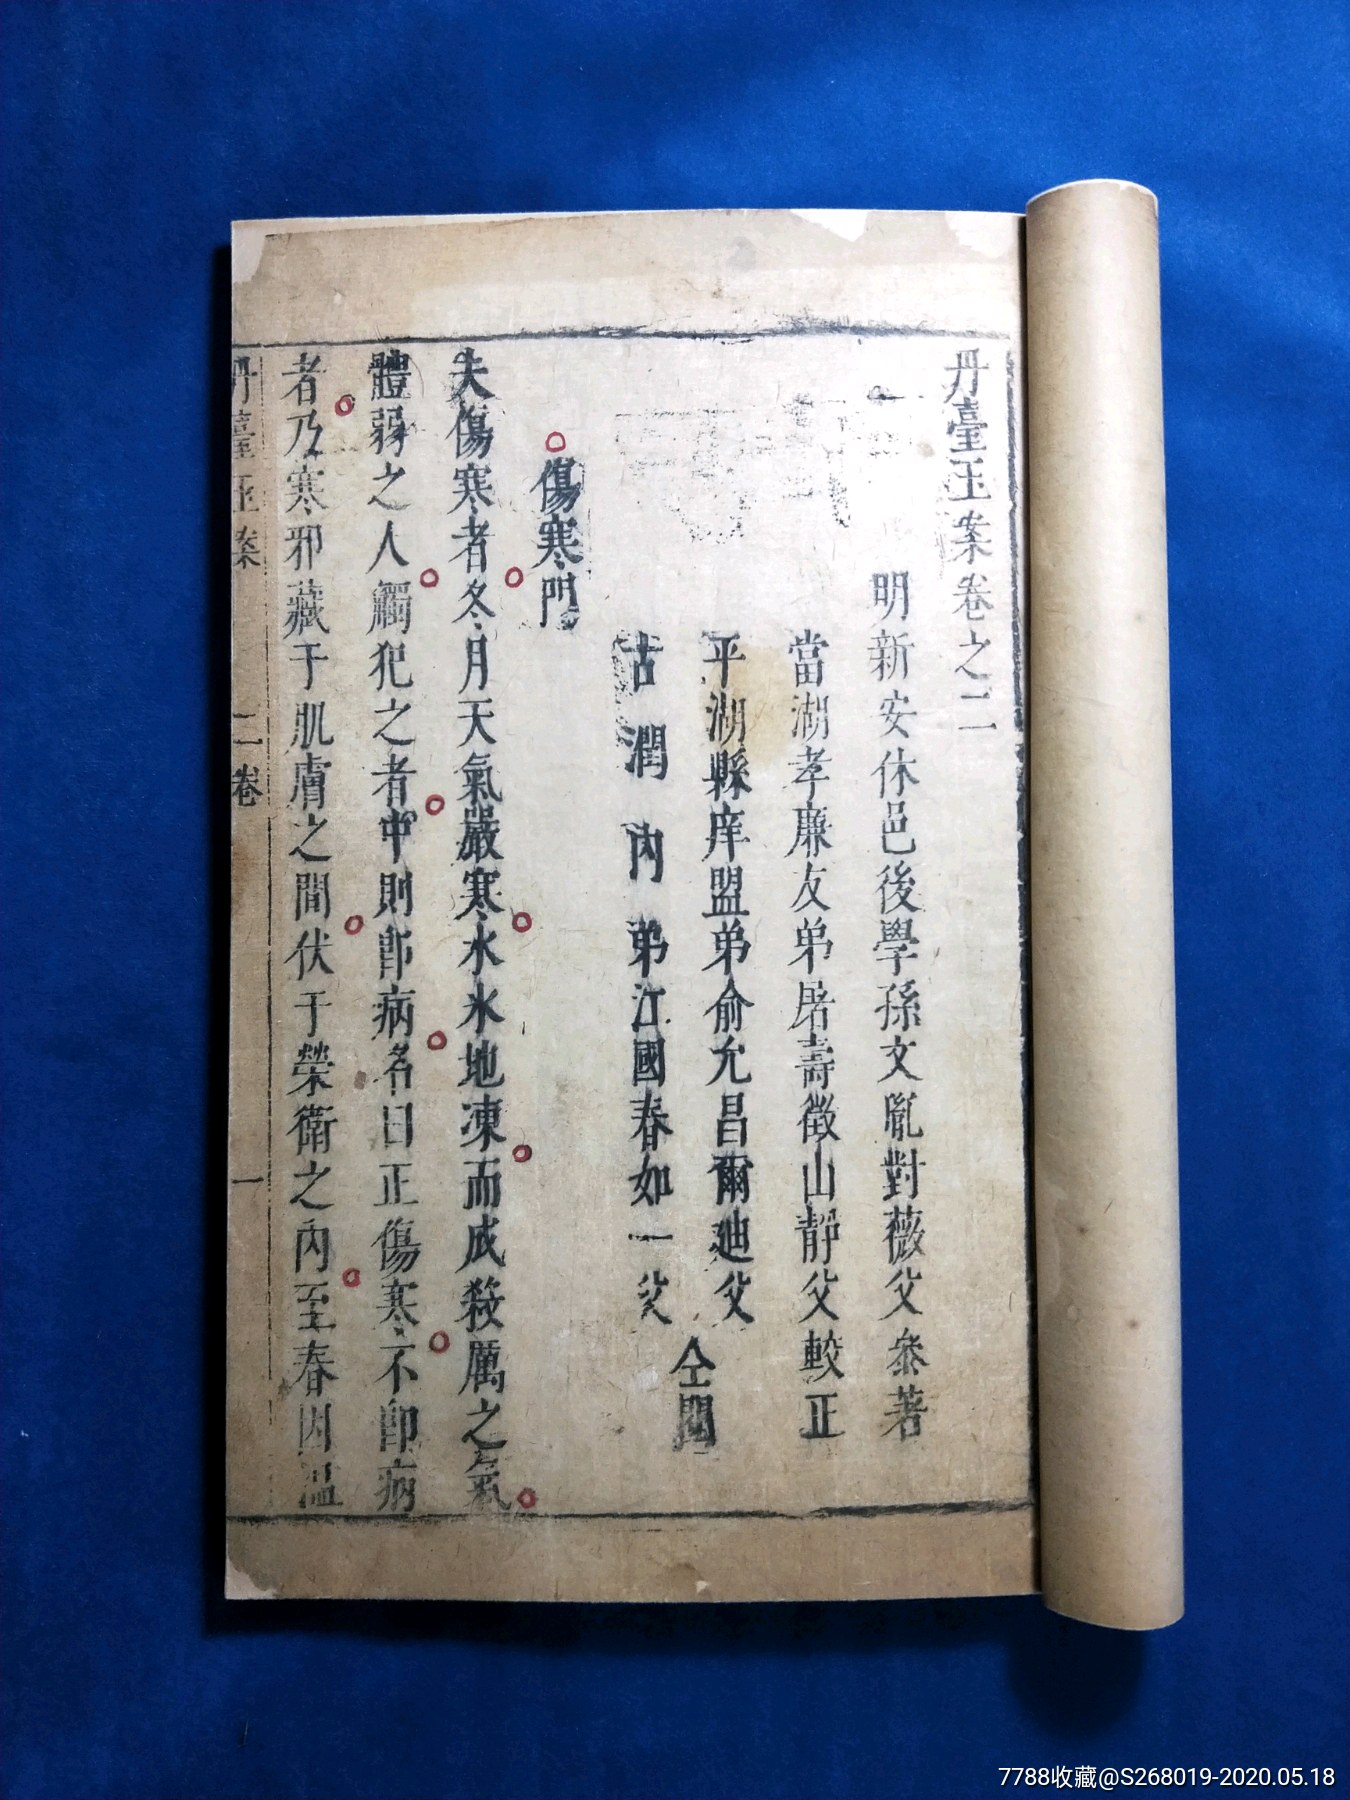 丹臺玉案卷之二
明新安休邑後學孫文胤對薇父叅著
當湖孝廉友弟屠壽徵山靜父較正
平湖縣庠盟弟俞允昌爾廸父
古潤內弟江國春如一父
仝閱
傷寒門
夫傷寒者冬月天氣嚴寒水氷地凍而成殺厲之氣
體弱之人觸犯之者中則卽病名曰正傷寒不卽病
者乃寒邪藏于肌膚之間伏于榮衛之內至春因溫
丹臺玉案 二卷 一
7788收藏@S268019-2020.05.18